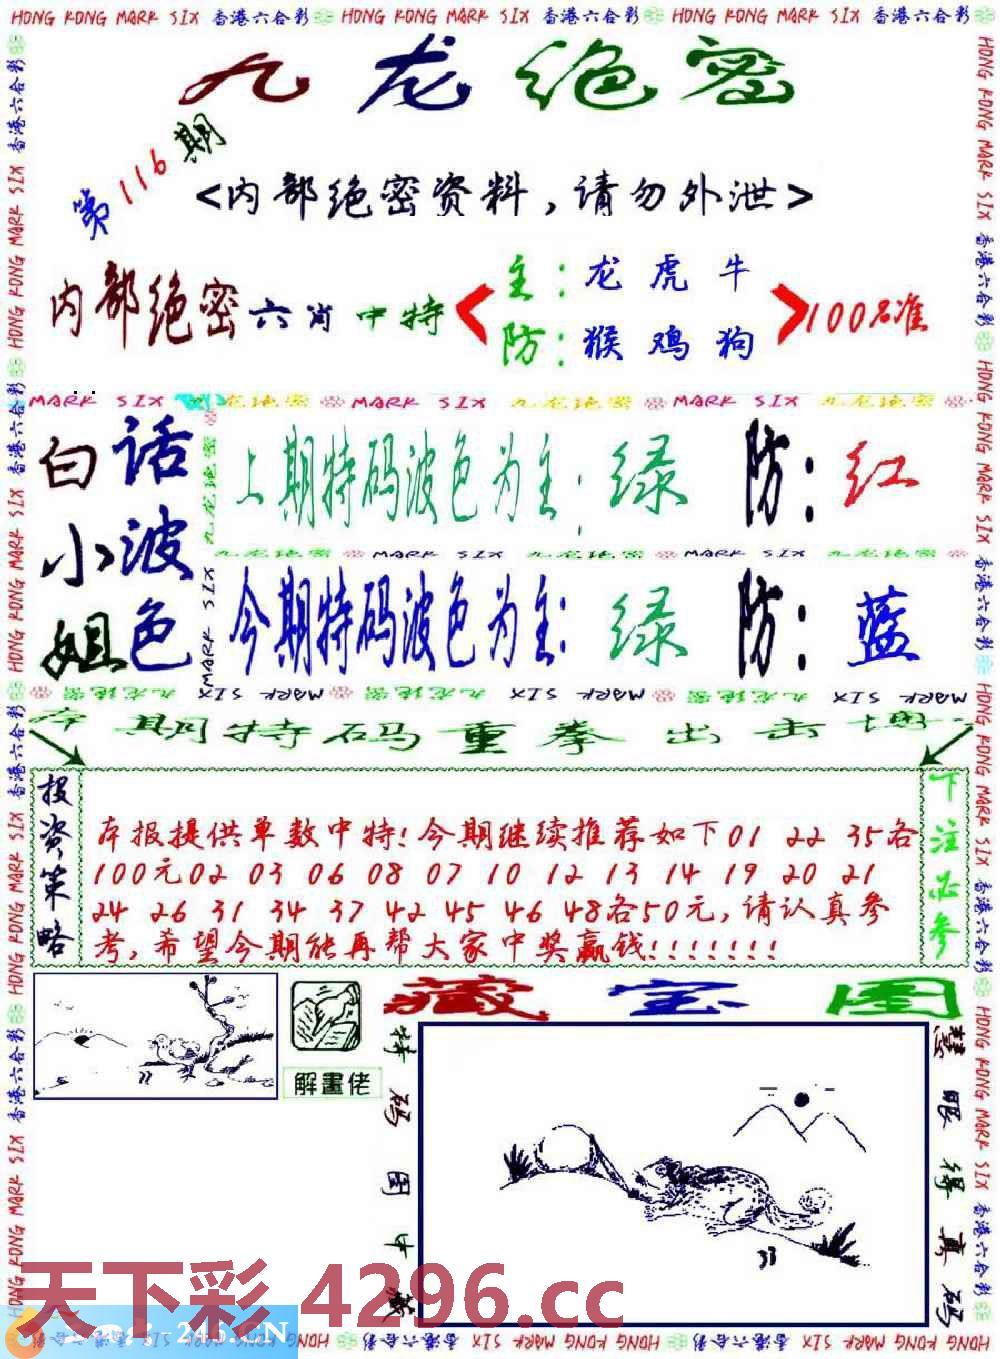 HONG KONG MARK SIX 香港六合彩 HONG KONG MARK SIX 香港六合彩 HONG KONG MARK SIX 香港六合彩
九龙绝密
第116期
<内部绝密资料,请勿外泄>
内部绝密六肖中特
主:龙虎牛
防:猴鸡狗
100%准
MARK SIX 九龙绝密 MARK SIX 九龙绝密 MARK SIX 九龙绝密
白小姐
话波色
上期特码波色为主:绿 防:红
九龙绝密 MARK SIX 九龙绝密 MARK SIX 九龙绝密
今期特码波色为主:绿 防:蓝
本期特码重拳出击
投资策略
本报提供单数中特!今期继续推荐如下01 22 35各
100元02 03 06 08 07 10 12 13 14 19 20 21
24 26 31 34 37 42 45 46 48各50元,请认真参
考,希望今期能再帮大家中奖赢钱!!!!!!!
下注必参
解畫佬
藏宝图
特码图中藏
慧眼得真码
天下彩 4296.cc
246.CN